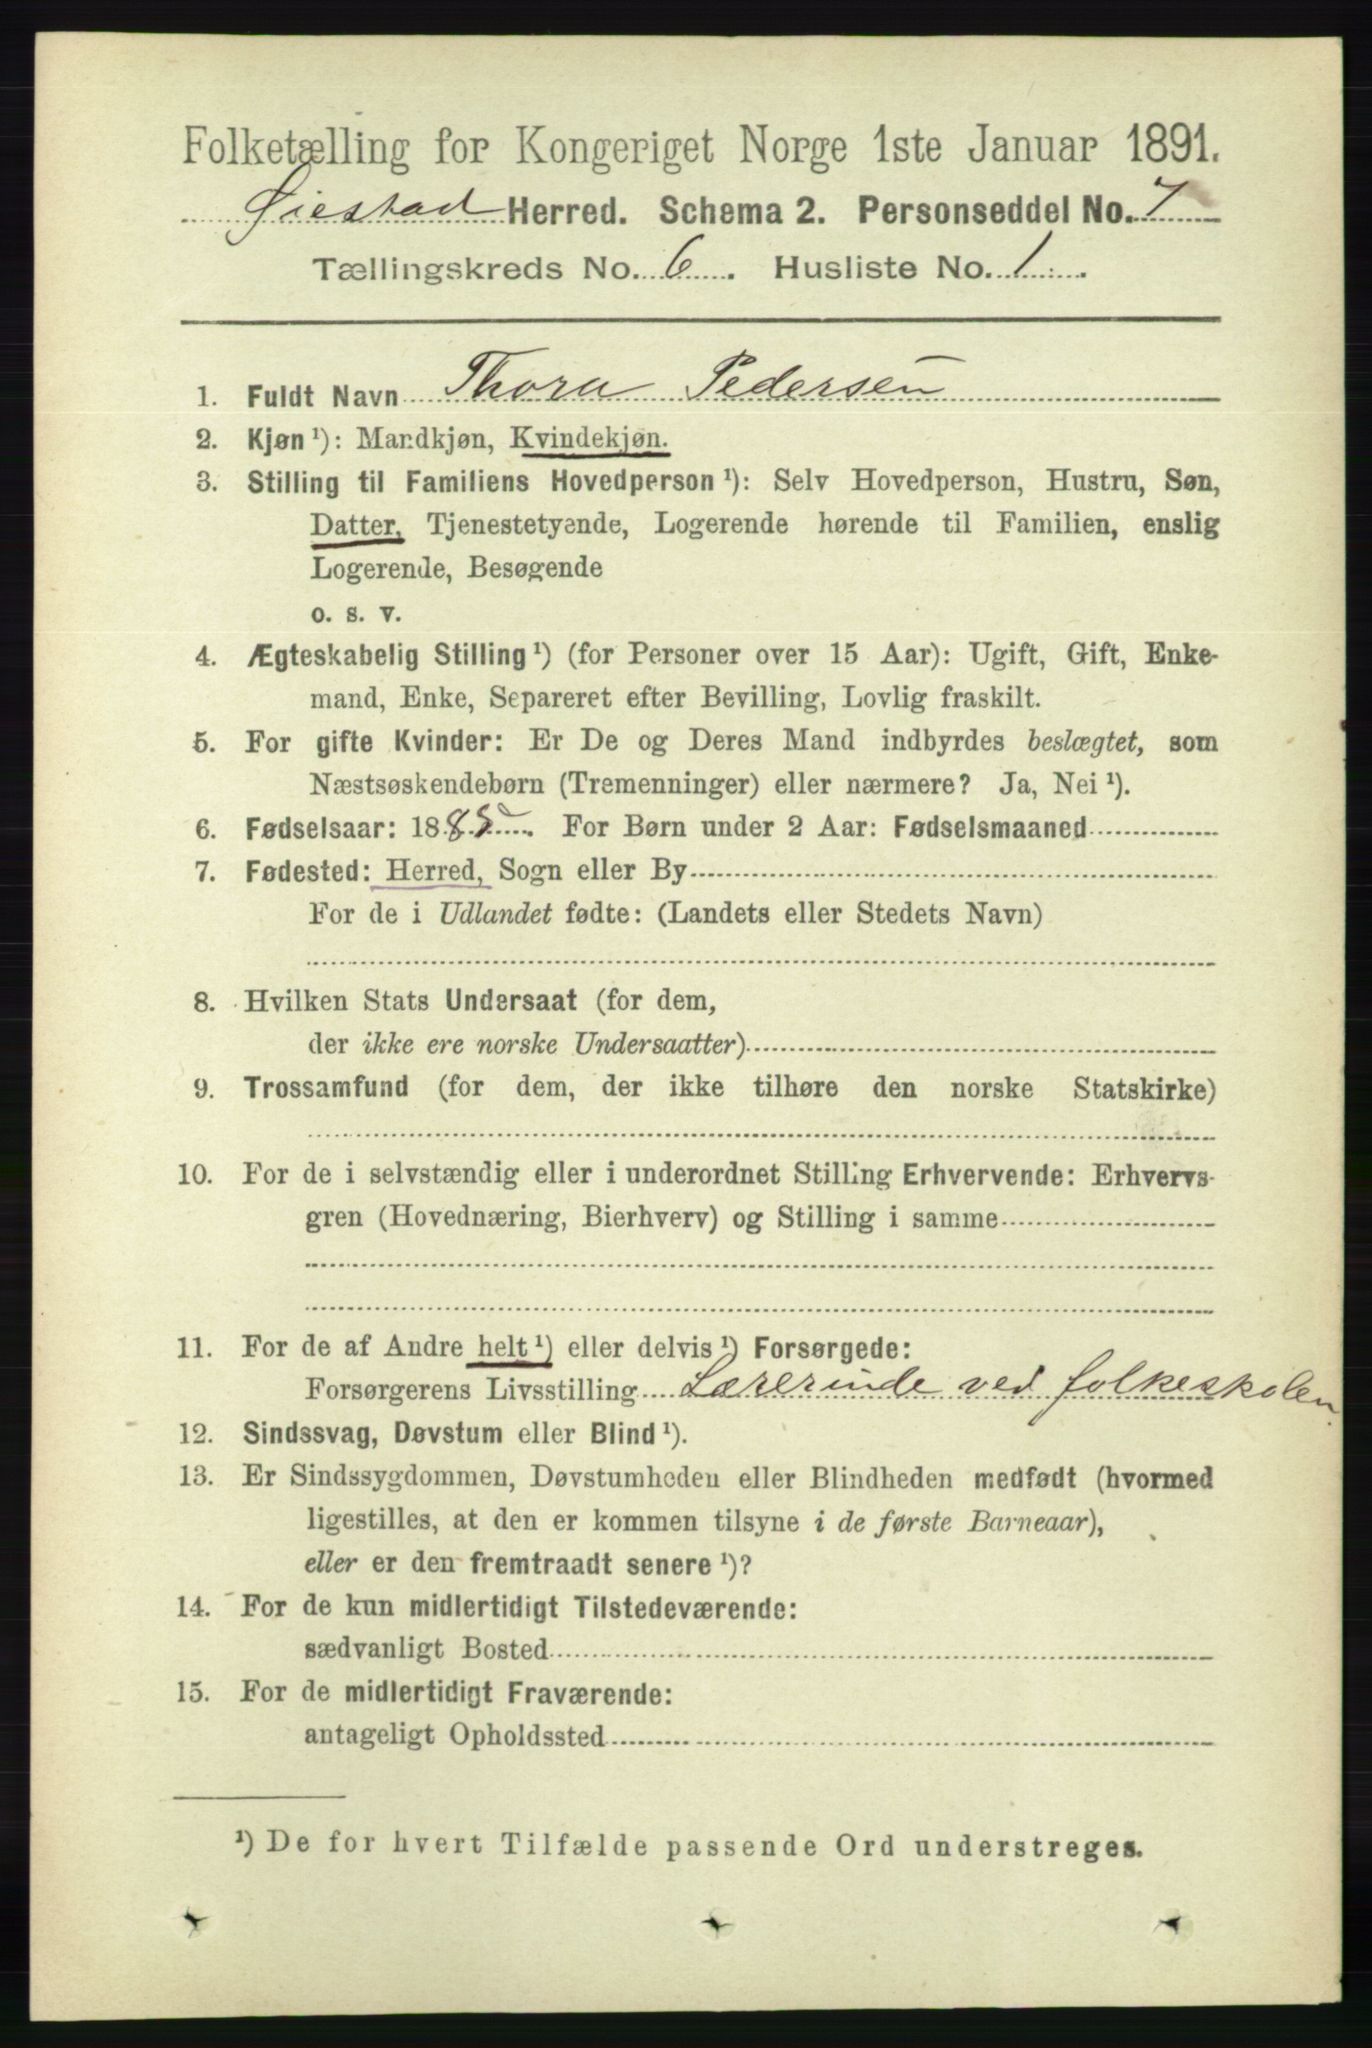 Folketælling for Kongeriget Norge 1ste Januar 1891.
Øiestad Herred. Schema 2. Personseddel No. 7
Tællingskreds No. 6. Husliste No. 1.
1. Fuldt Navn Thora Pedersen
2. Kjøn ¹): Mandkjøn, Kvindekjøn.
3. Stilling til Familiens Hovedperson ¹): Selv Hovedperson, Hustru, Søn,
Datter, Tjenestetyende, Logerende hørende til Familien, enslig
Logerende, Besøgende
o. s. v.
4. Ægteskabelig Stilling ¹) (for Personer over 15 Aar): Ugift, Gift, Enke-
mand, Enke, Separeret efter Bevilling, Lovlig fraskilt.
5. For gifte Kvinder: Er De og Deres Mand indbyrdes beslægtet, som
Næstsøskendebørn (Tremenninger) eller nærmere? Ja, Nei ¹).
6. Fødselsaar: 1885. For Børn under 2 Aar: Fødselsmaaned
7. Fødested: Herred, Sogn eller By
For de i Udlandet fødte: (Landets eller Stedets Navn)
8. Hvilken Stats Undersaat (for dem,
der ikke ere norske Undersaatter)
9. Trossamfund (for dem, der ikke tilhøre den norske Statskirke)
10. For de i selvstændig eller i underordnet Stilling Erhvervende: Erhvervs-
gren (Hovednæring, Bierhverv) og Stilling i samme
11. For de af Andre helt ¹) eller delvis ¹) Forsørgede:
Forsørgerens Livsstilling Lærerinde ved folkeskolen.
12. Sindssvag, Døvstum eller Blind ¹).
13. Er Sindssygdommen, Døvstumheden eller Blindheden medfødt (hvormed
ligestilles, at den er kommen tilsyne i de første Barneaar),
eller er den fremtraadt senere ¹)?
14. For de kun midlertidigt Tilstedeværende:
sædvanligt Bosted
15. For de midlertidigt Fraværende:
antageligt Opholdssted
¹) De for hvert Tilfælde passende Ord understreges.